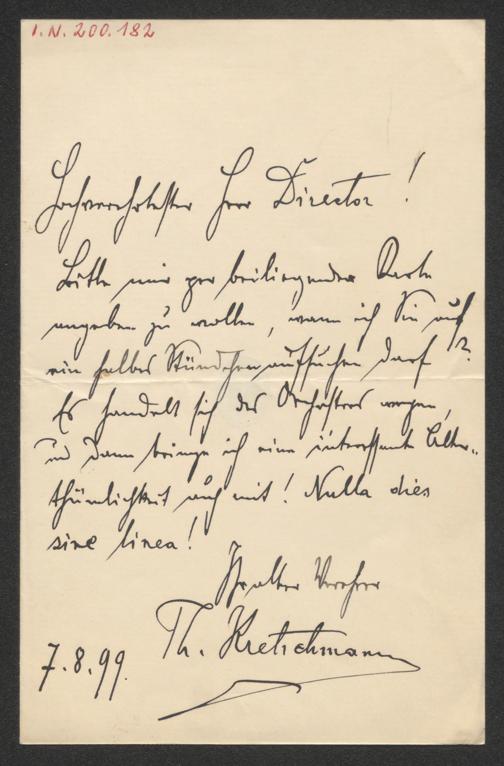 I.N. 200.182
Hochverehrtester Herr Director!
Bitte mir per beiliegender Karte
angeben zu wollen, wann ich Sie auf
ein halbes Stündchen aufsuchen darf?
Es handelt sich des Orchesters wegen,
und dann bringe ich eine interessante Alter-
thümlichkeit auch mit! Nulla dies
sine linea!
Ihr alter Verehrer
Th. Kretschmann
7.8.99.